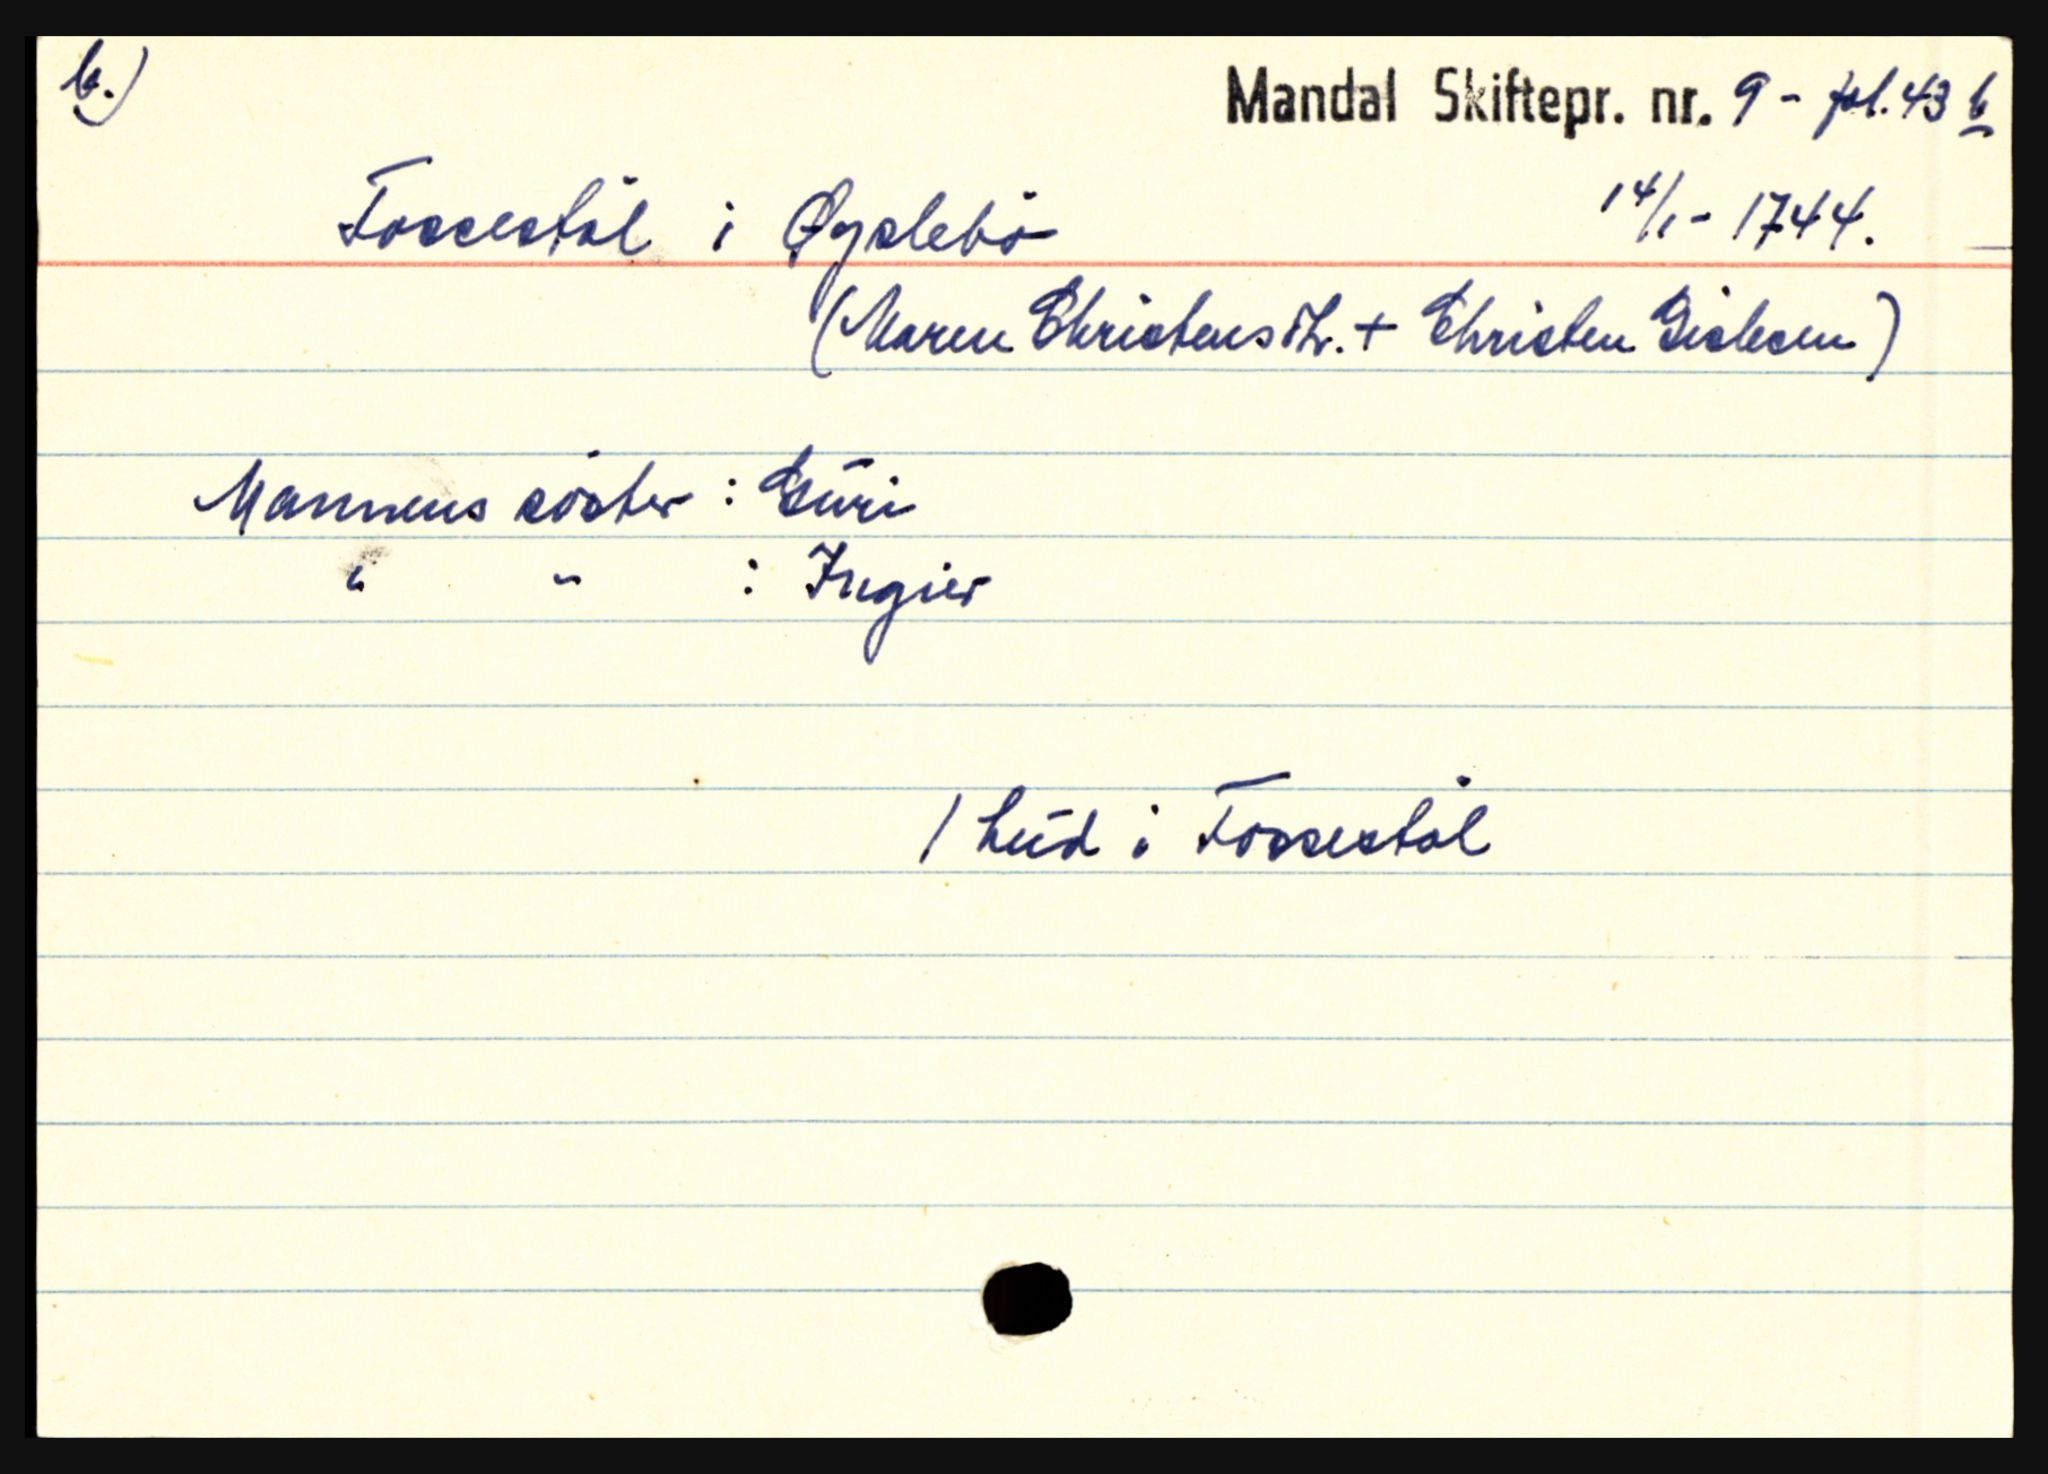 b.)
Mandal Skiftepr. nr. 9 - fol. 43 b
Fossestøl i Øyslebö 14/1 - 1744.
(Maren Christensdtr. + Christen Gislesen)
Mannens söster : Guri
" " : Ingier
1 hud i Fossestøl